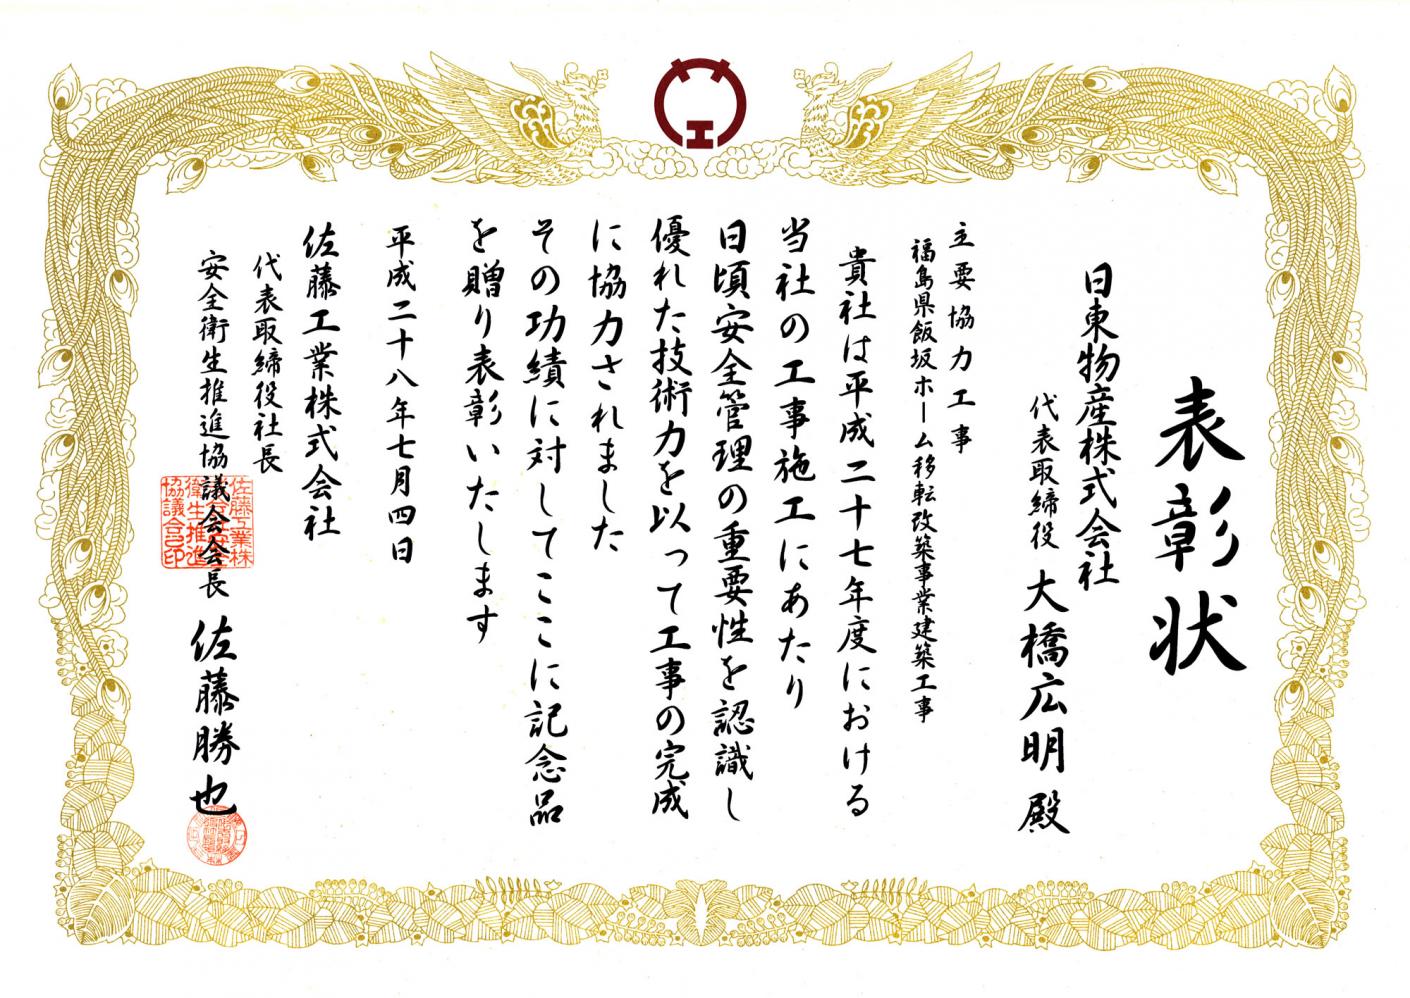 表彰状
日東物産株式会社
代表取締役 大橋広明 殿
主要協力工事
福島県飯坂ホーム移転改築事業建築工事
貴社は平成二十七年度における
当社の工事施工にあたり
日頃安全管理の重要性を認識し
優れた技術力を以って工事の完成
に協力されました
その功績に対してここに記念品
を贈り表彰いたします
平成二十八年七月四日
佐藤工業株式会社
代表取締役社長
安全衛生推進協議会会長 佐藤勝也